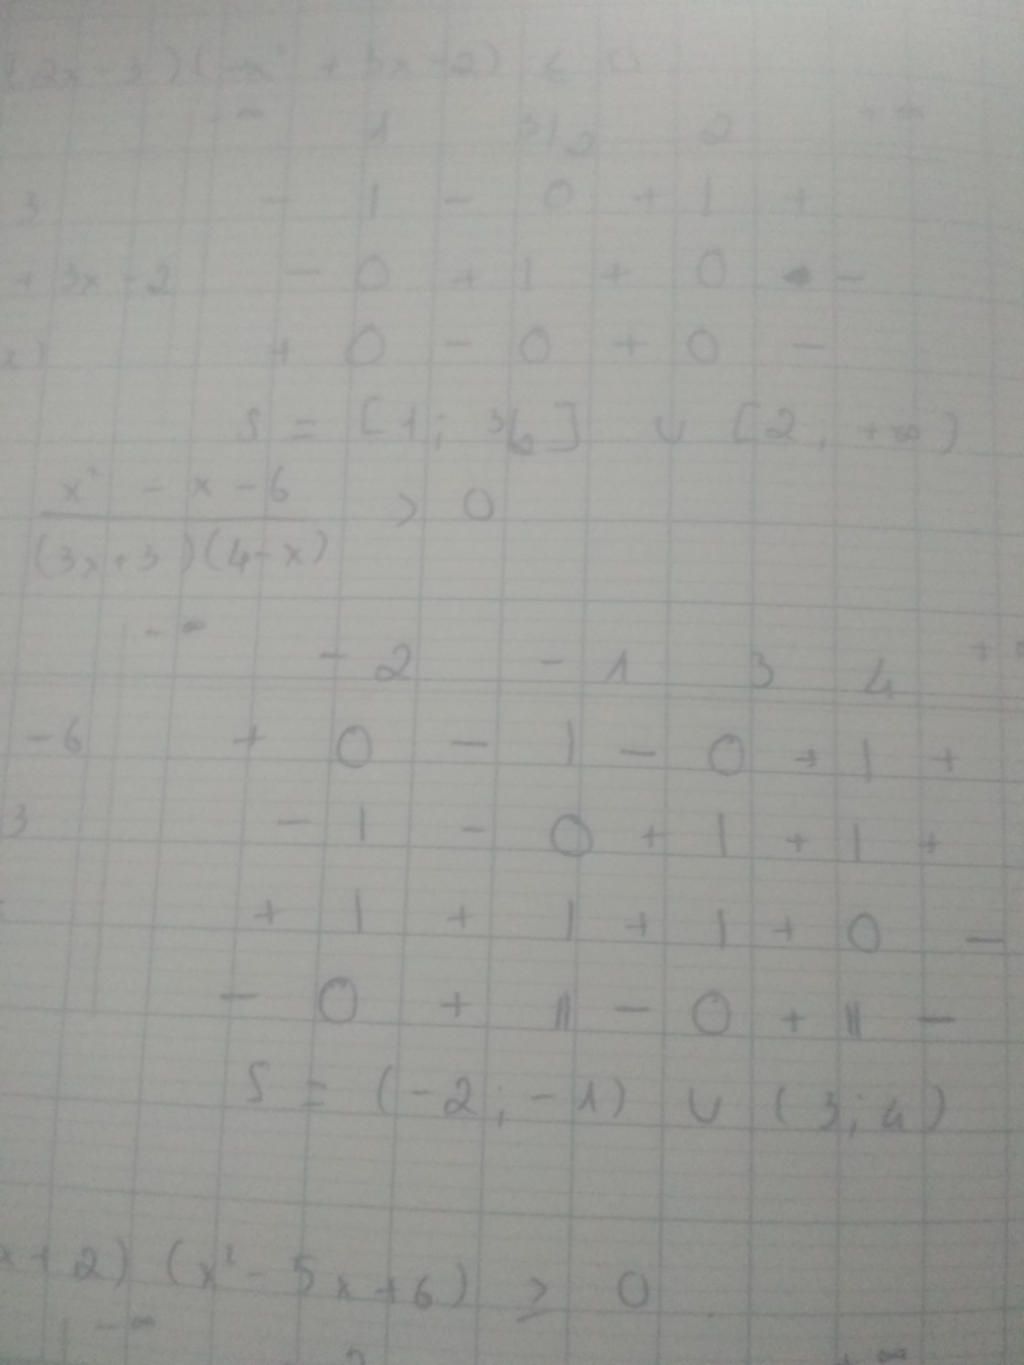 (2x-3)(-x² + 3x-2) ≤ 0
-∞ 1 3/2 2 +∞
3 - | - 0 + | +
+ 3x - 2 - 0 + | + 0 -
x) + 0 - 0 + 0 -
S = [1; 3/2] ∪ [2, +∞)
x² - x - 6 > 0
(3x+3)(4-x)
-∞ -2 -1 3 4 +
-6 + 0 - | - 0 + | +
3 - | - 0 + | + | +
+ | + | + | + 0 -
- 0 + || - 0 + || -
S = (-2; -1) ∪ (3; 4)
x+2) (x² - 5x+6) ≥ 0
-∞ +∞